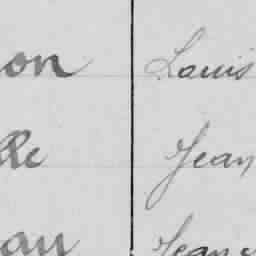 on Louis
lle Jean
au Jean